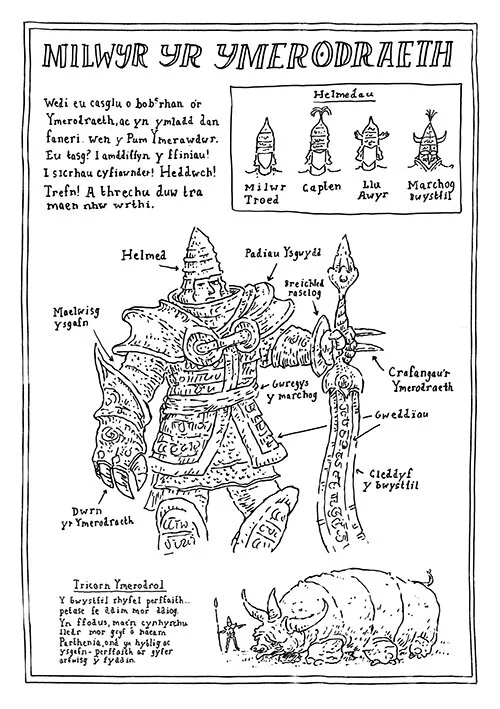 MILWYR YR YMERODRAETH
Wedi eu casglu o bob rhan o'r
Ymerodraeth, ac yn ymladd dan
faneri wen y Pum Ymerawdwr.
Eu tasg? I amddiffyn y ffiniau!
I sicrhau cyfiawnder! Heddwch!
Trefn! A threchu duw tra
maen nhw wrthi.
Helmedau
Milwr
Troed
Capten
Llu
Awyr
Marchog
Bwystfil
Helmed
Padiau Ysgwydd
Breichled
raselog
Maelwisg
ysgafn
Crafangau'r
Ymerodraeth
Gwregys
y marchog
Gweddïau
Cleddyf
y bwystfil
Dwrn
yr Ymerodraeth
Tricorn Ymerodrol
Y bwystfil rhyfel perffaith...
petase fe ddim mor ddiog.
Yn ffodus, mae'n cynhyrchu
lledr mor gryf â
Parthenia, ond yn hyblyg ac
ysgafn - perffaith ar gyfer
arfwisg y fyddin.